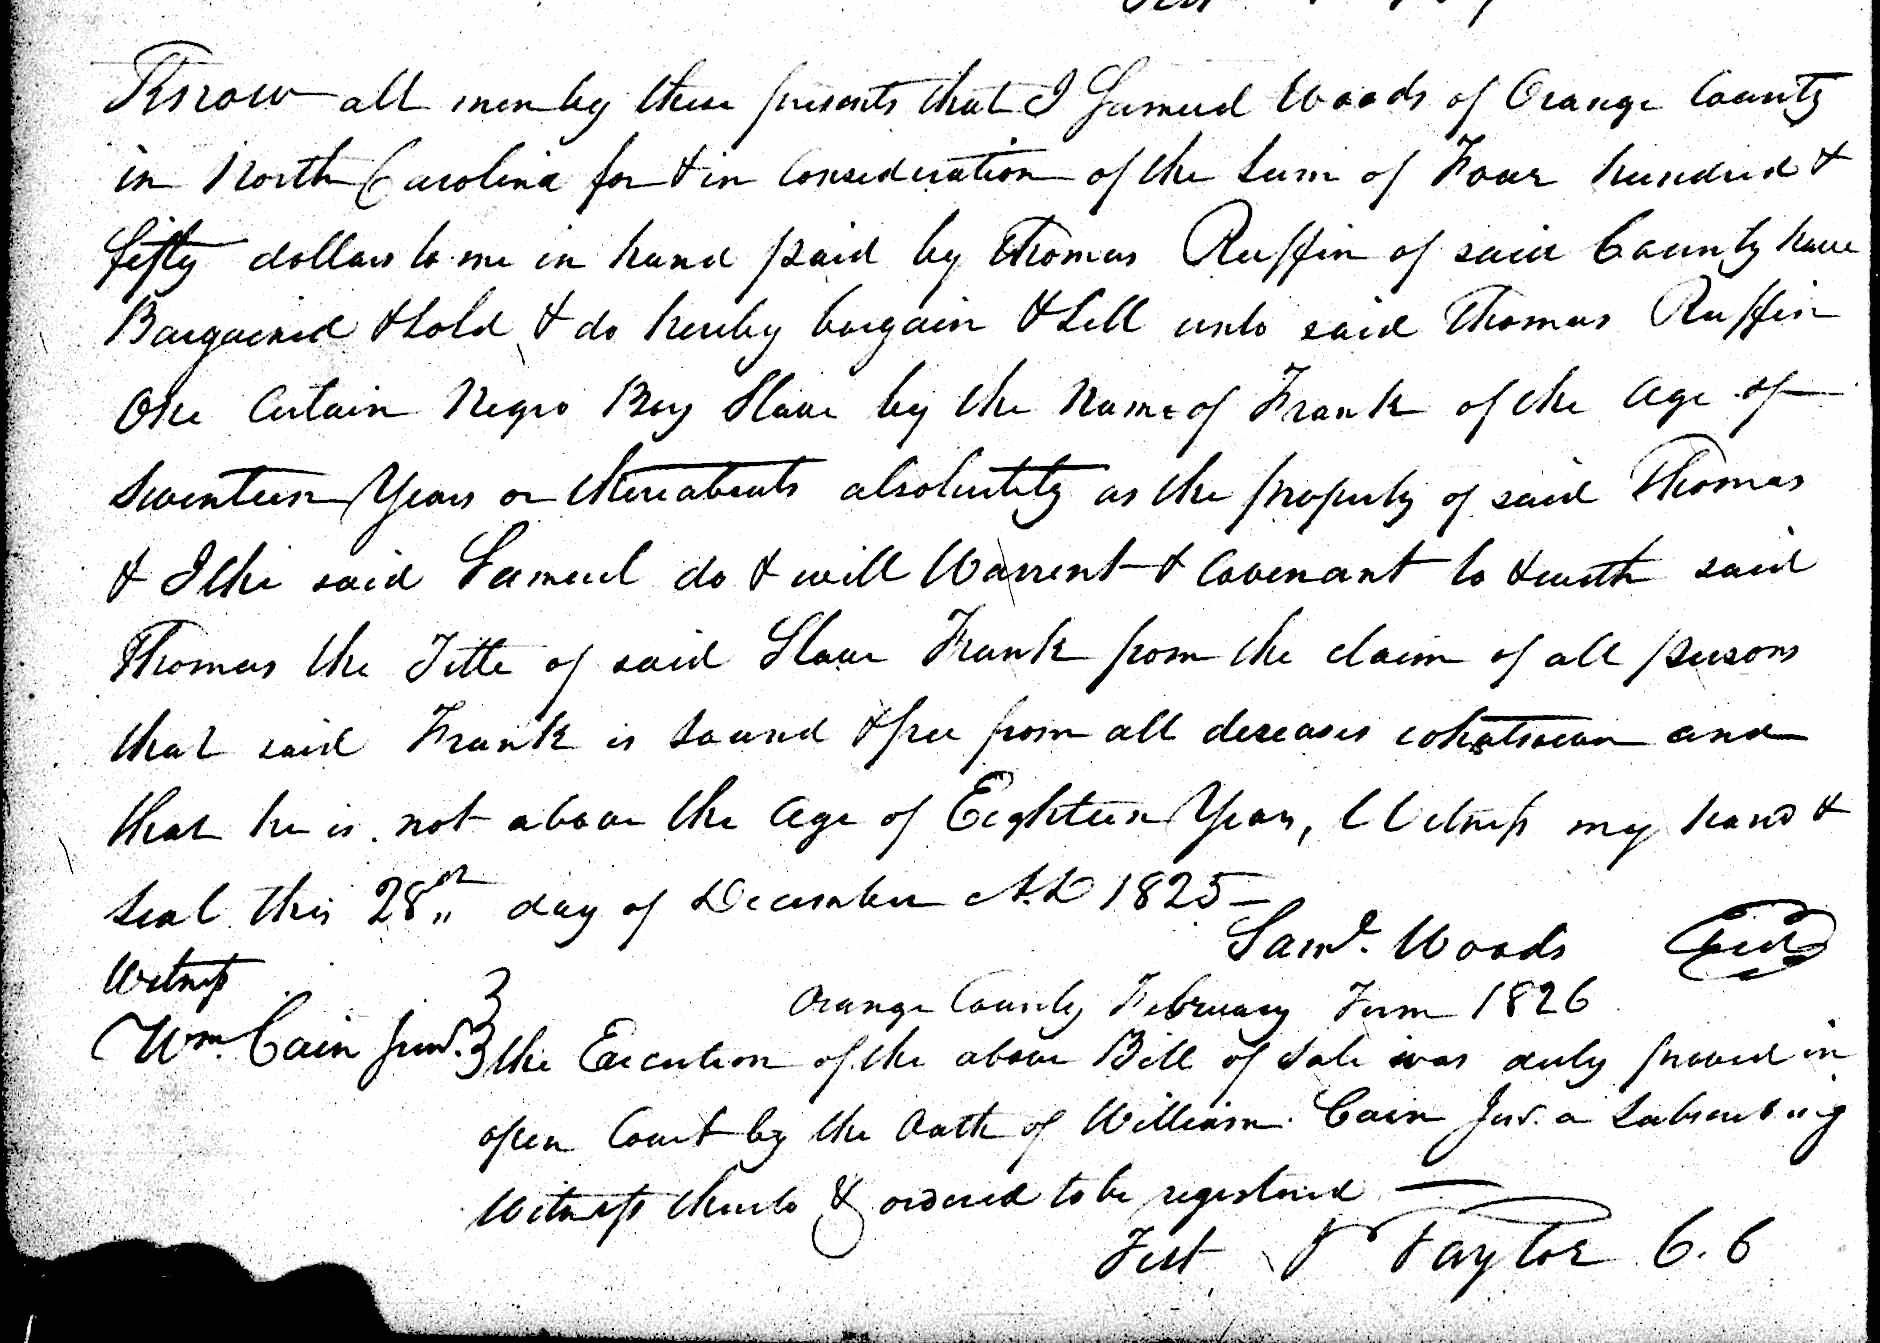 Test
Know all men by these presents that I Samuel Woods of Orange County
in North Carolina for & in Consideration of the Sum of Four hundred &
fifty dollars to me in hand paid by Thomas Ruffin of said County have
Bargained & Sold & do hereby bargain & Sell unto said Thomas Ruffin
One Certain Negro Boy Slave by the Name of Frank of the Age of
Seventeen Years or thereabouts absolutely as the property of said Thomas
& I the said Samuel do & will Warrent & Covenant to & with said
Thomas the Title of said Slave Frank from the claim of all persons
that said Frank is Sound & free from all deseases whatsoever and
that he is not above the Age of Eighteen Years, Witness my hand &
Seal this 28th day of December A.D 1825 —
Saml. Woods Seal
Witness
Orange County February Term 1826
Wm. Cain Junr. the Execution of the above Bill of Sale was duly proved in
open Court by the Oath of William Cain Jur. a Subscribing
Witness thereto & ordered to be registered —
Test J Taylor C.C